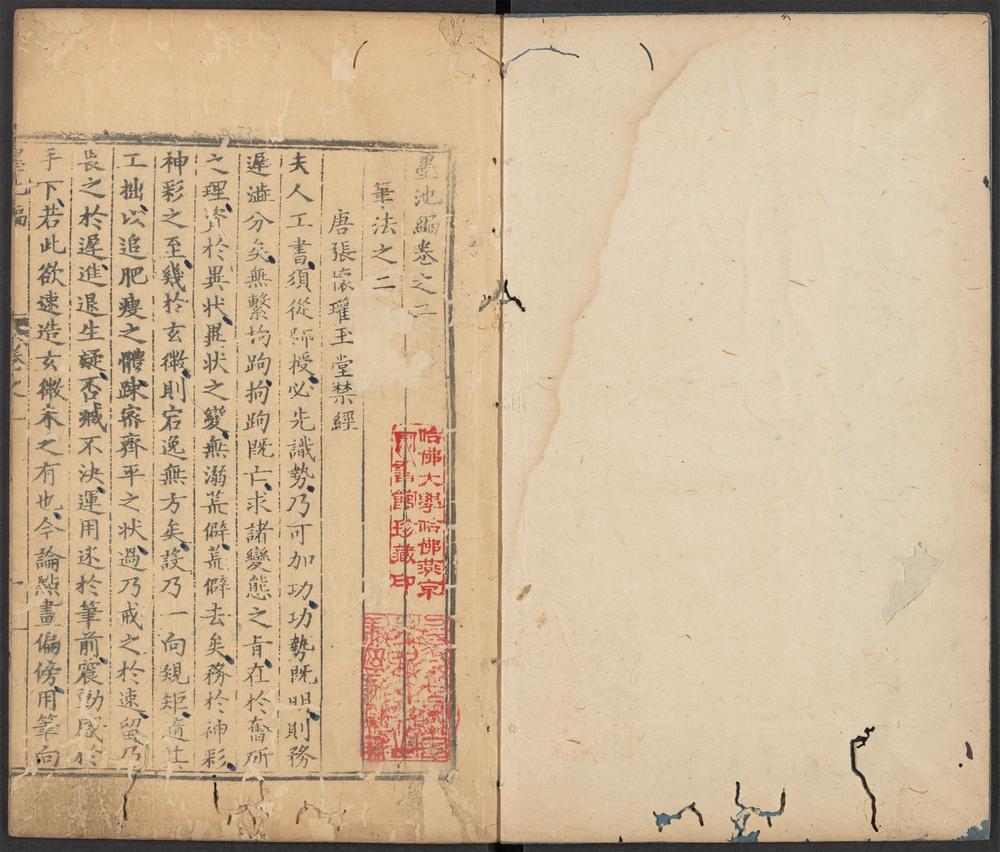 墨池編卷之二
筆法之二
唐張懷瓘玉堂禁經
夫人工書須從師授必先識勢乃可加功功勢既明則務
遲澁分矣無繫拘跔拘跔既亡求諸變態之旨在於奮斫
之理資於異狀異狀之變無溺荒僻荒僻去矣務於神彩
神彩之至幾於玄微則宕逸無方矣設乃一向規矩隨其
工拙以追肥瘦之體踈宻齊平之狀過乃戒之於速留乃
畏之於遲進退生疑否臧不決運用迷於筆前震動感於
手下若此欲速造玄微未之有也今論點畫偏傍用筆向
墨池編
卷之
哈佛大學哈佛燕京
圖書館珍藏印